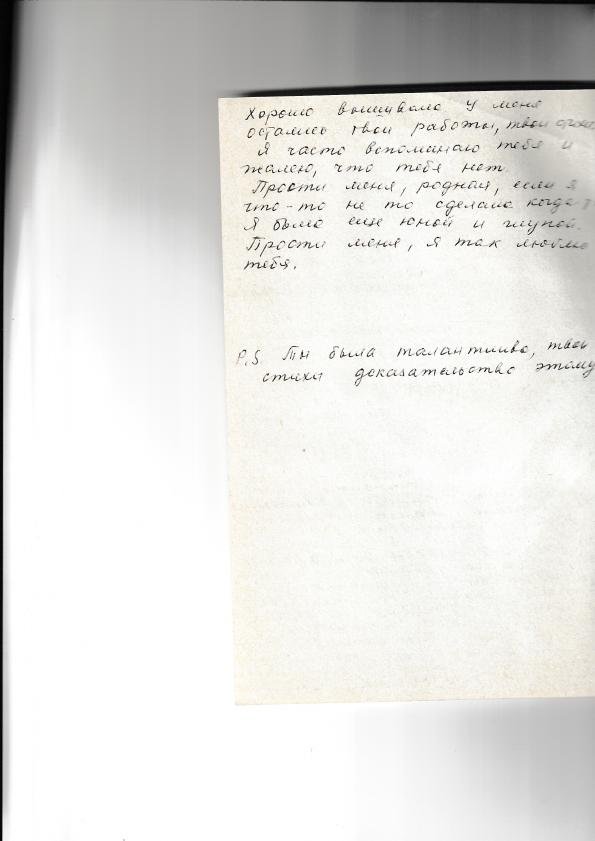 Хорошо вышивала у меня
остались твои работы, твои стихи
Я часто вспоминаю тебя и
жалею, что тебя нет.
Прости меня, родная, если я
что-то не то сделала
Я была еще юной и глупой.
Прости меня, я так люблю
тебя.
P.S. Ты была талантлива, твои
стихи доказательство этому